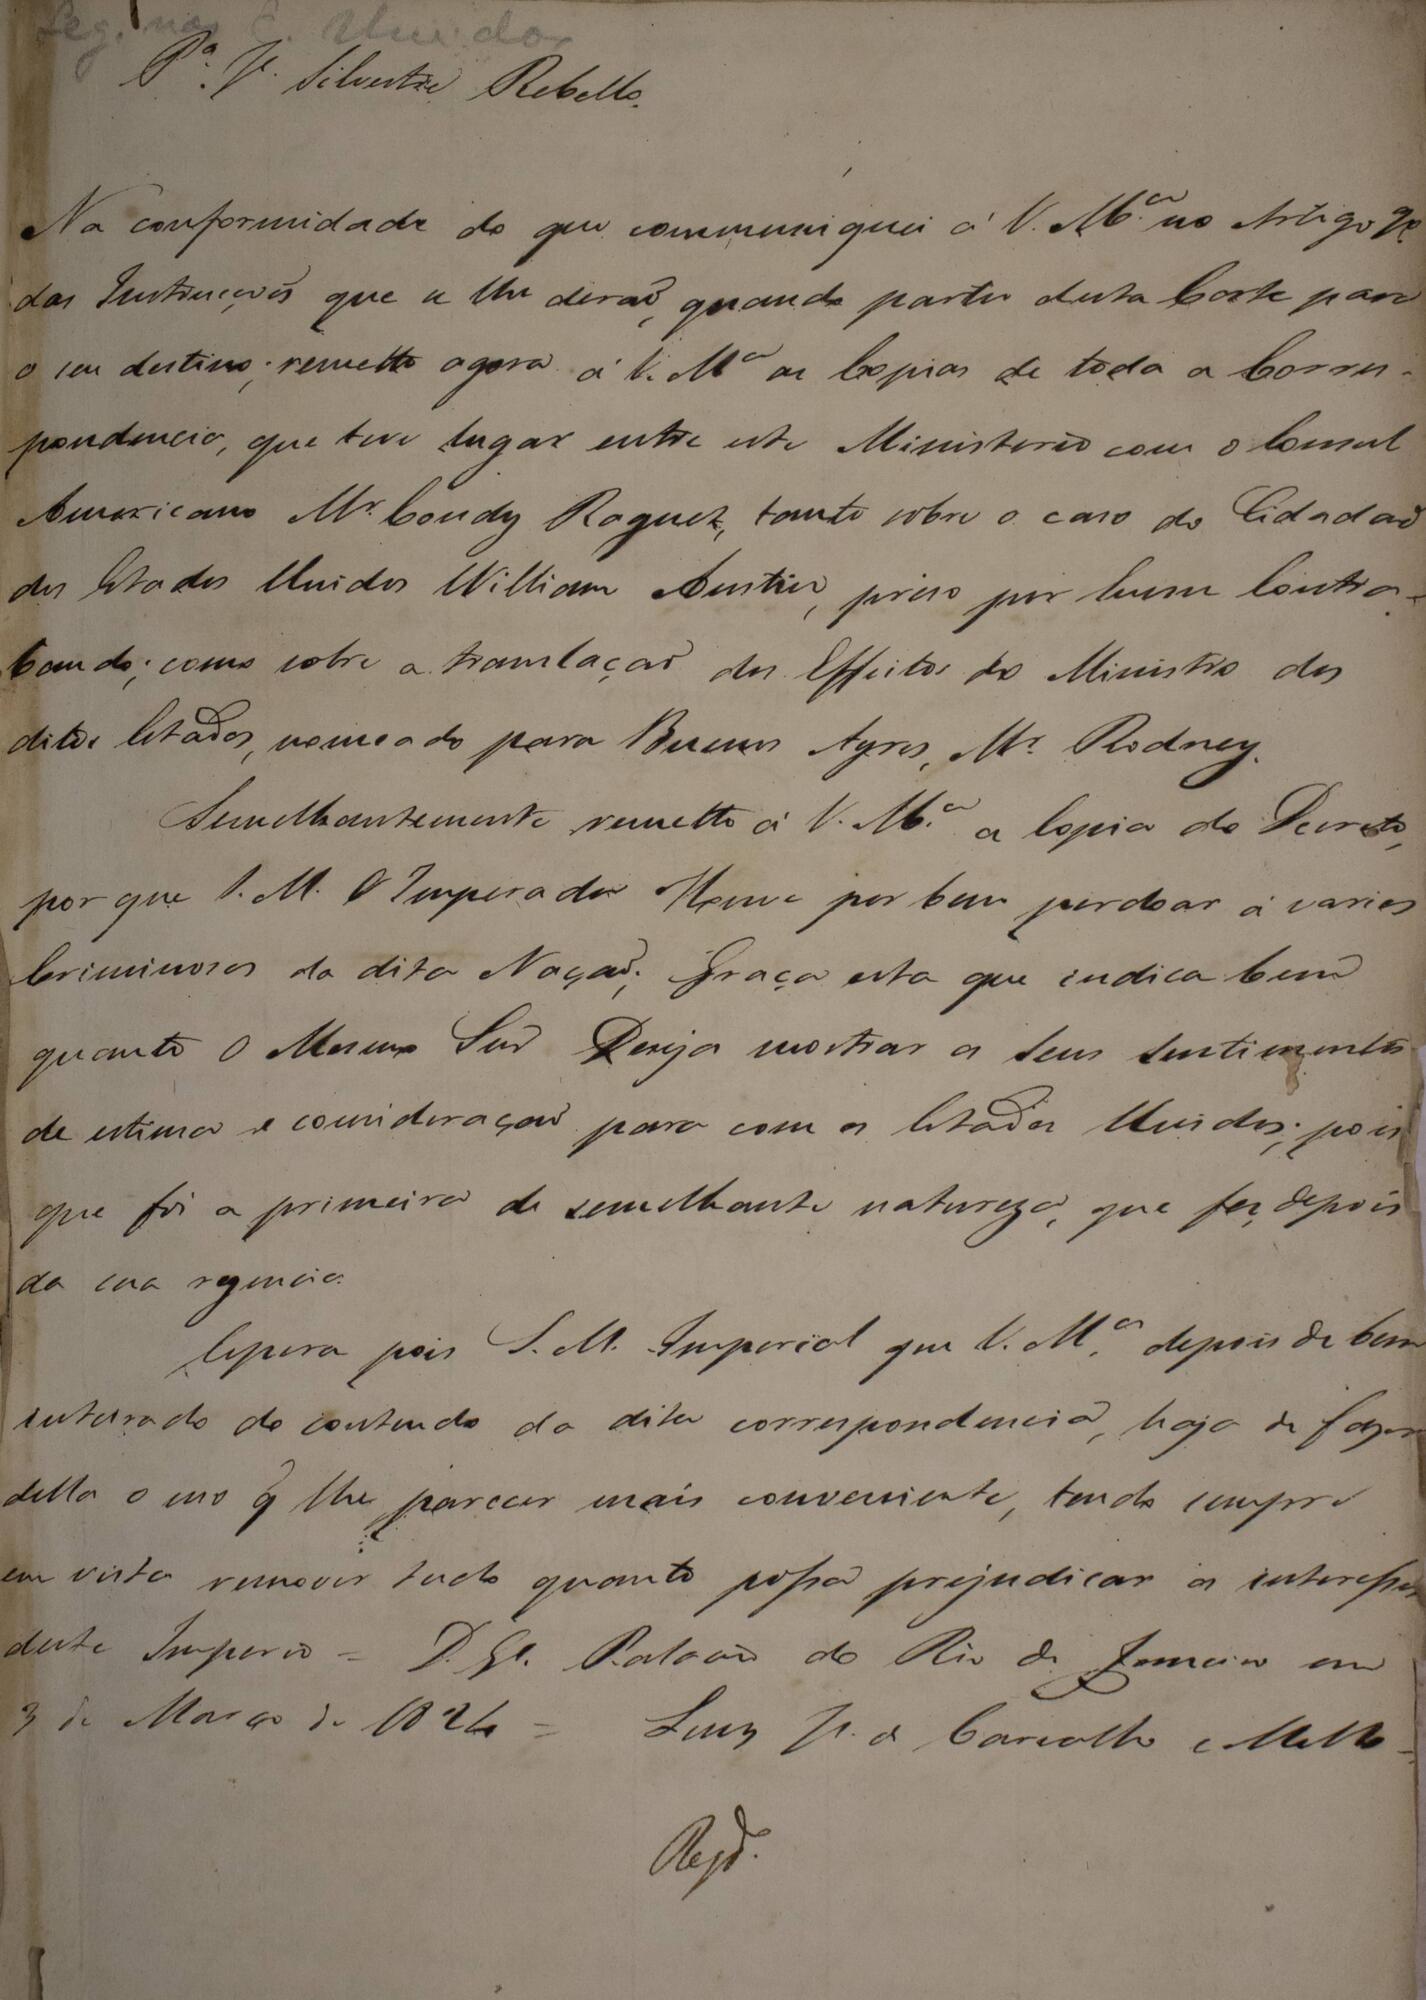 Leg. nos E. Unidos
Pª. J. Silvestre Rebello.
Na conformidade do que communiquei á V. M.ce no Artigo 9º
das Instrucçoẽs que se lhe deraõ, quando partio desta Corte para
o seu destino; remetto agora á V. M.ce as Copias de toda a Corres-
pondencia, que teve lugar entre este Ministerio com o Consul
Americano Mr. Condy Raguet, tanto sobre o caso do Cidadaõ
dos Estados Unidos William Austin, preso por hum Contra-
bando; como sobre a translaçaõ dos Effeitos do Ministro dos
ditos Estados, nomeado para Buenos Ayres, Mr. Rodney.
Semelhantemente remetto á V. M.ce a Copia do Decreto,
por que S. M. O Imperador Houve por bem perdoar á varios
Criminosos da dita Naçaõ; Graça esta que indica bem
quanto O Mesmo Snr̃ Deseja mostrar os seus sentimentos
de estima e consideraçaõ para com os Estados Unidos; pois
que foi a primeira de semelhante natureza, que fez, depois
da sua regencia.
Espera pois S. M. Imperial que V. M.ce depois de bem
inteirado do contendo da dita correspondencia, haja de fazer
della o uso q̃ lhe parecer mais conveniente, tendo sempre
em vista remover tudo quanto possa prejudicar os interesses
deste Imperio = D. G.e. Palacio do Rio de Janeiro em
3 de Março de 1824 = Luiz J. de Carvalho e Mello =
Regd.